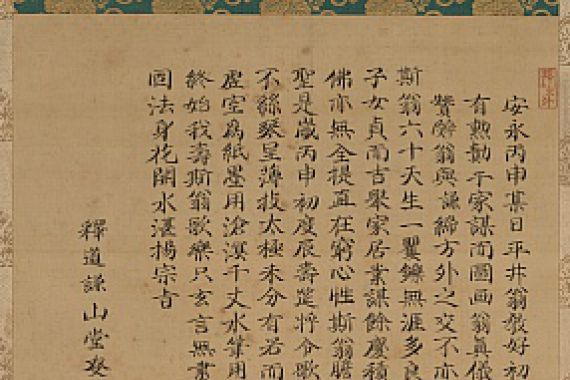 安永丙申某日平井翁教好初
有勲勤于家謀而圖画翁眞儀
賛辭翁與謙締方外之交不亦
斯翁六十天生一矍鑠無涯多良
子女貞而吉聚家居業謀餘慶積
佛亦無全提直在窮心性斯翁瞻
聖是歳丙申初度辰壽筵將令歌
不絲琴呈薄技太極未分有若而
虚空為紙墨用滄溟千丈水筆用
終始我壽斯翁歌樂只玄言無
固法身花開水湛揚宗旨
釋道謙山堂